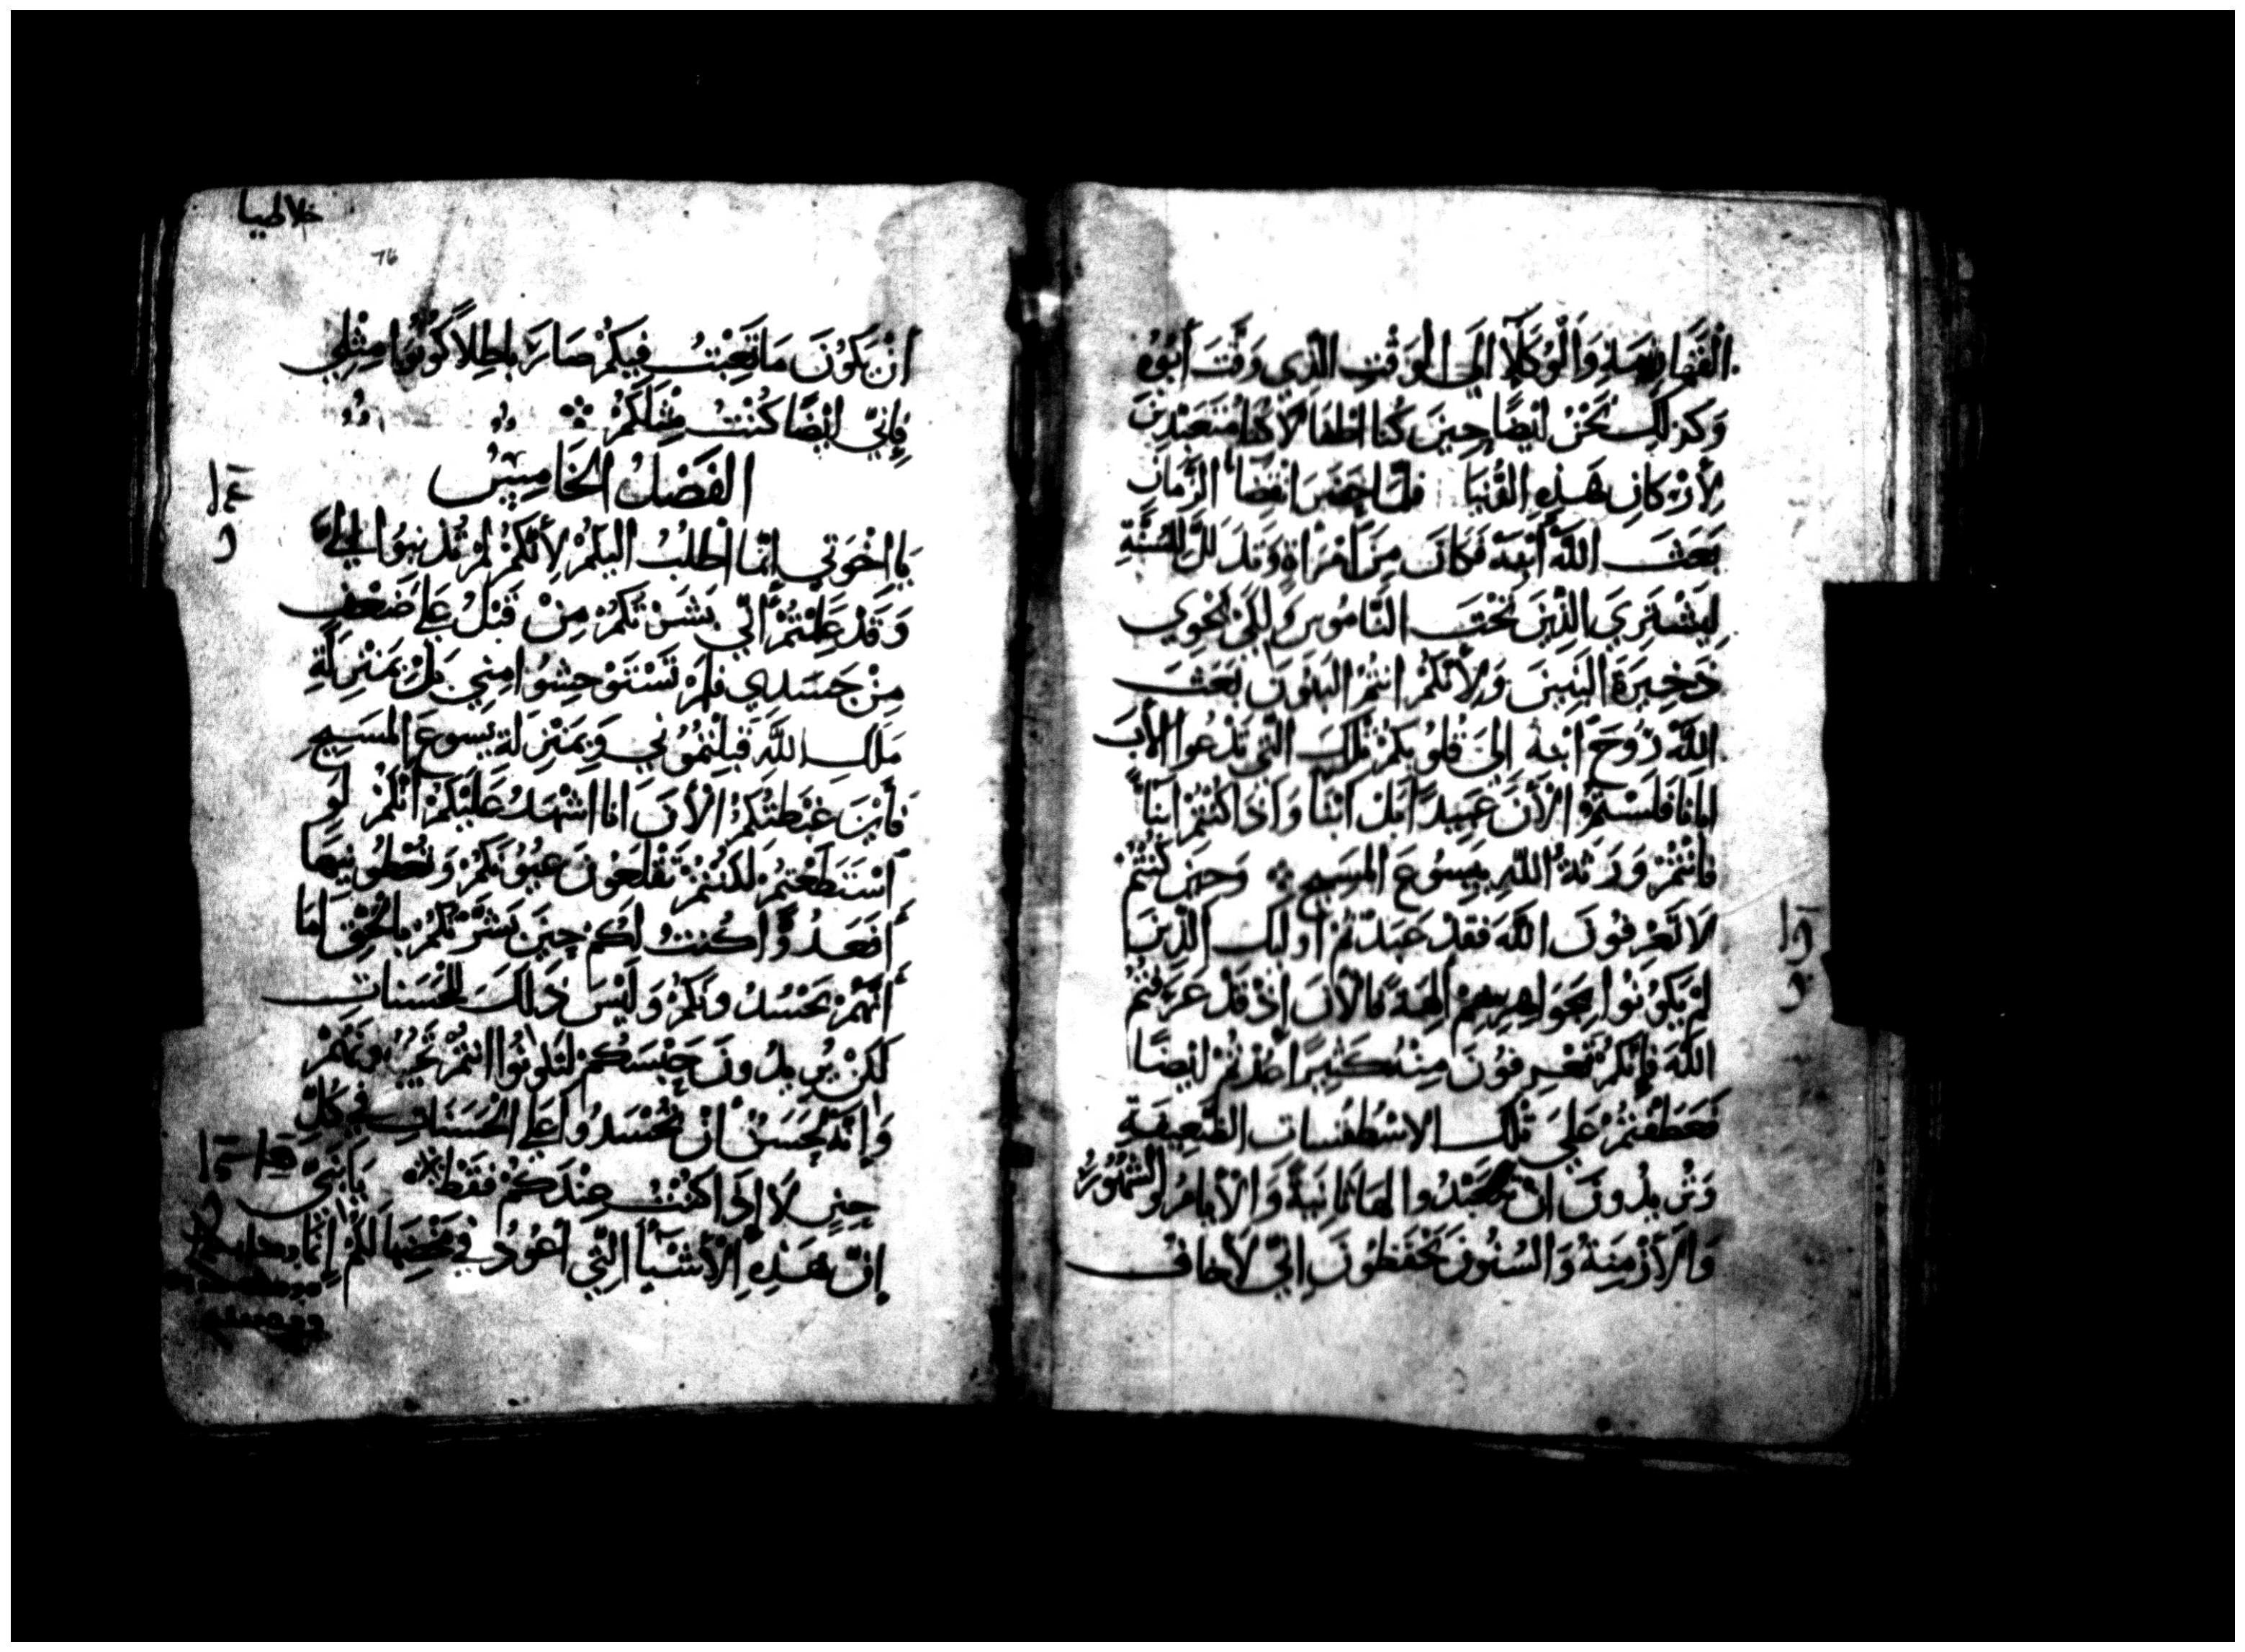 القهارمة وَالْوُكَلَآ إلَى الْوَقْتِ الَّذِي وَقَّتَ أَبُوهُ
وَكَذَلِكَ نَحْنُ أَيْضًا حِينَ كُنَّا أَطْفَالًا كُنَّا مُتَعَبِّدِينَ
لِأَرْكَانِ هَذِهِ الدُّنْيَا فَلَمَّا حَضَرَ انْقِضَا الزَّمَانِ
بَعَثَ اللَّهُ ابْنَهُ فَكَانَ مِنَ امْرَأَةٍ وَتَذَلَّلَ لِلسُّنَّةِ
لِيَشْتَرِيَ الَّذِينَ تَحْتَ النَّامُوسِ وَلِكَيْ نَحْوِي
ذَخِيرَةَ الْبَنِينَ وَلِأَنَّكُمْ أَنْتُمُ الْبَنُونَ بَعَثَ
اللَّهُ رُوحَ ابْنِهِ إِلَى قُلُوبِكُمْ تِلْكَ الَّتِي تَدْعُوا الْأَبَ
أَبَانَا فَلَسْتُمُ الْأَنَ عَبِيدًا بَلْ أَبْنَا وَإِذَا كُنْتُمْ أَبْنَاً
فَأَنْتُمْ وَرَثَةُ اللَّهِ بِيَسُوعَ الْمَسِيحِ ⁘ وَحِينَ كُنْتُمْ
لَا تَعْرِفُونَ اللَّهَ فَقَدْ عَبَدْتُمْ أُولَيِكَ الَّذِينَ
لَمْ يَكُونُوا بِجَوَاهِرِهِمْ آلِهَةً فَالْأَنَ إِذْ قَدْ عَرَفْتُمُ
اللَّهَ فَإِنَّكُمْ تَعْرِفُونَ مِنْهُ كَثِيرًا عُدْتُمْ أَيْضًا
فَعَطَفْتُمْ عَلَى تِلْكَ الاسْطُقُسَاتِ الضَّعِيفَةِ
وَتُرِيدُونَ أَنْ تَتَعَبَّدُوا لَهَا ثَانِيَةً وَالْأَيَّامُ وَالشُّهُورُ
وَالْأَزْمِنَةُ وَالسُّنُونَ تَحْفَظُونَ إِنِّي لَأَخَافُ
غلاطيا
76
أَنْ يَكُونَ مَا تَعِبْتُ فِيكُمْ صَارَ بَاطِلًا كُونُوا مِثْلِي
فَإِنِّي أَيْضًا كُنْتُ مِثْلَكُمْ ⁘
الفَصْلُ الْخَامِسُ
يَا اخْوَتِي إِنَّمَا أَطْلُبُ إِلَيْكُمْ لِأَنَّكُمْ لَمْ تُذْنِبُوا إِلَيَّ
وَقَدْ عَلِمْتُمْ أَنِّي بَشَّرْتُكُمْ مِنْ قَبْلُ عَلَى ضَعْفٍ
مِنْ جَسَدِي فَلَمْ تَسْتَوْحِشُوا مِنِّي بَلْ بِمَنْزِلَةِ
مَلَكِ اللَّهِ قَبِلْتُمُونِي وَبِمَنْزِلَةِ يَسُوعَ الْمَسِيحِ
فَأَيْنَ غِبْطَتُكُمُ الْأَنَ أَنَا أَشْهَدُ عَلَيْكُمْ أَنَّكُمْ لَوِ
اسْتَطَعْتُمْ لَكُنْتُمْ تَقْلَعُونَ عُيُونَكُمْ وَتُعْطُونِيهَا
أَفَعَدُوًّا كُنْتُ لَكُمْ حِينَ بَشَّرْتُكُمْ بِالْحَقِّ أَمَا
أَنَّهُمْ يَحْسُدُونَكُمْ وَلَيْسَ ذَلِكَ لِلْحَسَنَاتِ
لَكِنْ يُرِيدُونَ حَبْسَكُمْ لِتَكُونُوا أَنْتُمْ
وَإِنَّهُ لَحَسَنٌ أَنْ تُحْسَدُوا عَلَى الْحَسَنَاتِ فِي كُلِّ
حِينٍ لَا إِذَا كُنْتُ عِنْدَكُمْ فَقَطْ ※ يَابَنِيَّ
إِنَّ هَذِهِ الْأَشْيَاَ الَّتِي أَعُودُ فِي مَخْضِهَا لَكُمْ إِنَّمَا